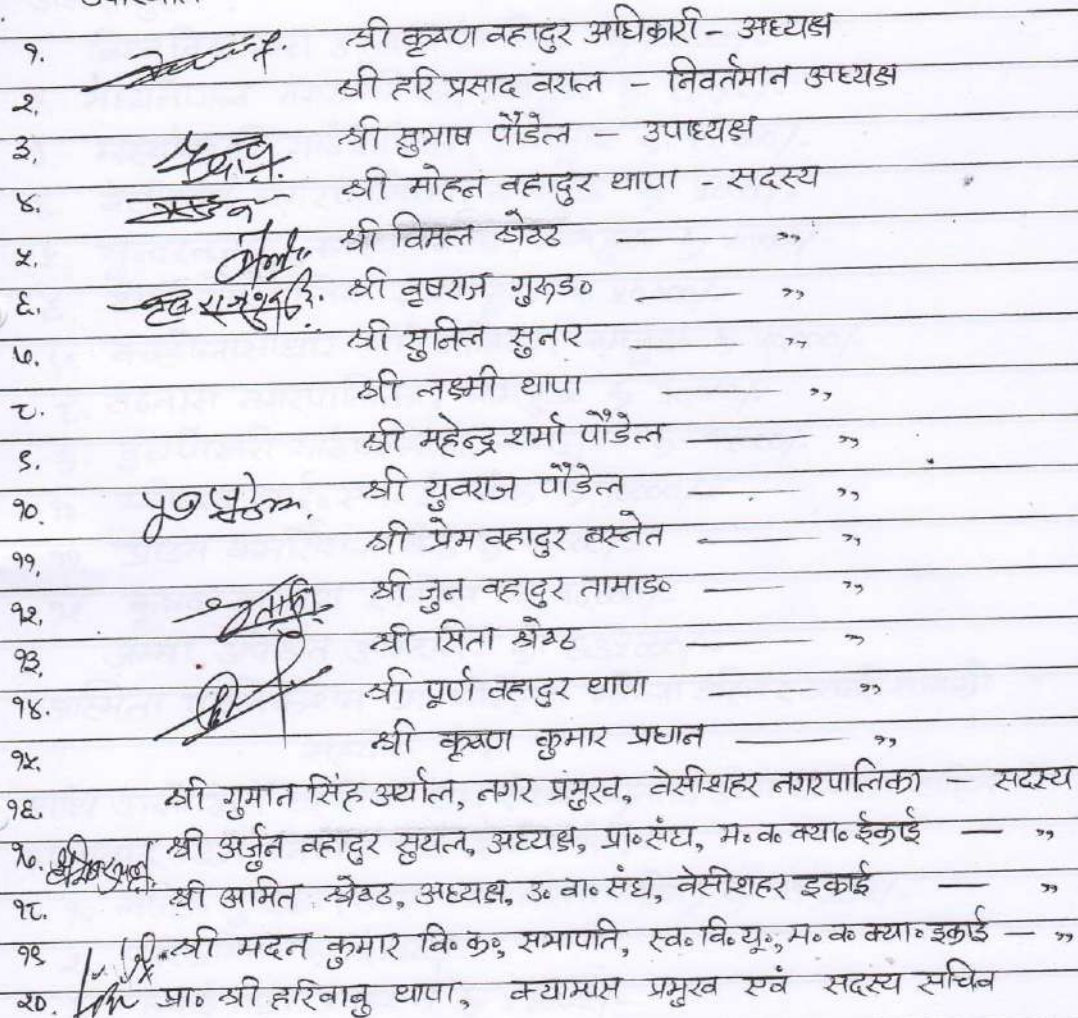 उपस्थिति
१. श्री कृष्ण वहादुर अधिकारी - अध्यक्ष
२. श्री हरि प्रसाद वराल - निवर्तमान अध्यक्ष
३. श्री सुभाष पौडेल - उपाध्यक्ष
४. श्री मोहन वहादुर थापा - सदस्य
५. श्री विमल श्रेष्ठ — ,,
६. श्री वृषराज गुरुङ — ,,
७. श्री सुनिल सुनार — ,,
८. श्री लक्ष्मी थापा — ,,
९. श्री महेन्द्र शर्मा पौडेल — ,,
१०. श्री युवराज पौडेल — ,,
११. श्री प्रेम वहादुर बस्नेत — ,,
१२. श्री जुन वहादुर तामाङ — ,,
१३. श्री सिता श्रेष्ठ — ,,
१४. श्री पूर्ण वहादुर थापा — ,,
१५. श्री कृष्ण कुमार प्रधान — ,,
१६. श्री गुमान सिंह अर्याल, नगर प्रमुख, वेसीशहर नगरपालिका - सदस्य
१७. श्री अर्जुन वहादुर सुयल, अध्यक्ष, प्रा॰संघ, म॰व॰क्या॰ईकाई — ,,
१८. श्री आमित श्रेष्ठ, अध्यक्ष, उ॰वा॰संघ, वेसीशहर इकाई — ,,
१९. श्री मदन कुमार वि॰क॰, सभापति, स्व॰वि॰यू॰, म॰व॰क्या॰इकाई — ,,
२०. प्रा॰ श्री हरिवावु थापा, क्याम्पस प्रमुख एवं सदस्य सचिव